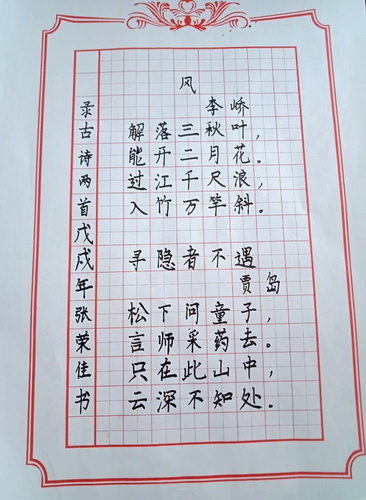 风
李峤
解落三秋叶，
能开二月花。
过江千尺浪，
入竹万竿斜。
寻隐者不遇
贾岛
松下问童子，
言师采药去。
只在此山中，
云深不知处。
录古诗两首戊戌年张荣佳书